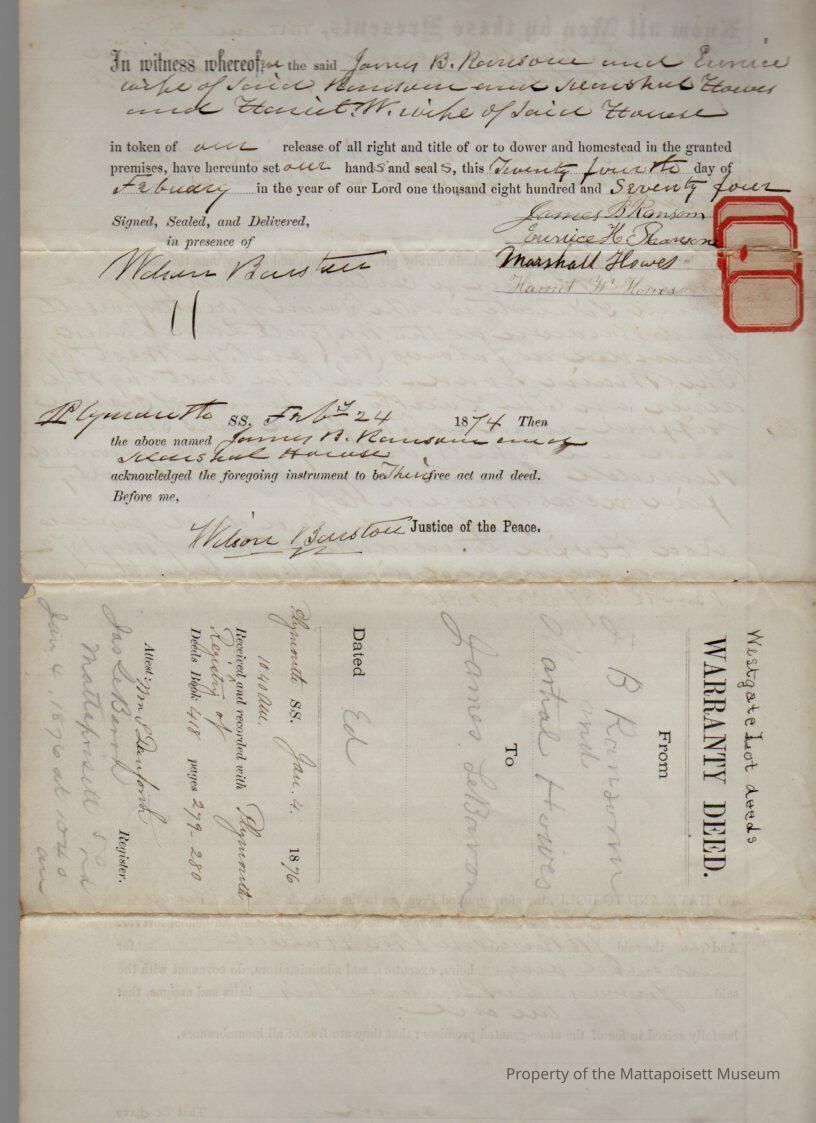 In witness whereof, we the said James B. Ransom and Eunice
wife of Said Ransom and Marshal Howes
and Hariet. W. wife of Said Howse
in token of our release of all right and title of or to dower and homestead in the granted
premises, have hereunto set our hands and seals, this Twenty fourth day of
Febuary in the year of our Lord one thousand eight hundred and Seventy four
Signed, Sealed, and Delivered,
in presence of
Wilson Barstow
James B Ransom
Eunice H. Ransom
Marshall Howes
Harriet W. Howes
Plymouth SS. Feby 24 1874 Then
the above named James B. Ransom and
Marshal Howse
acknowledged the foregoing instrument to be Their free act and deed.
Before me,
Wilson Barstow Justice of the Peace.
Westgate Lot deeds
WARRANTY DEED.
From
J B Ransom
and
Marshal Howes
To
James LeBaron
Dated Ed
Plymouth SS. Jan. 4. 1876
10.40 A.M.
Received and recorded with Plymouth
Registry of
Deeds Book 418 pages 279-280
Attest: Wm S Danforth
Register.
Jas LeBaron
Mattapoisett
Jan 4 1876 at 1040
am
Property of the Mattapoisett Museum